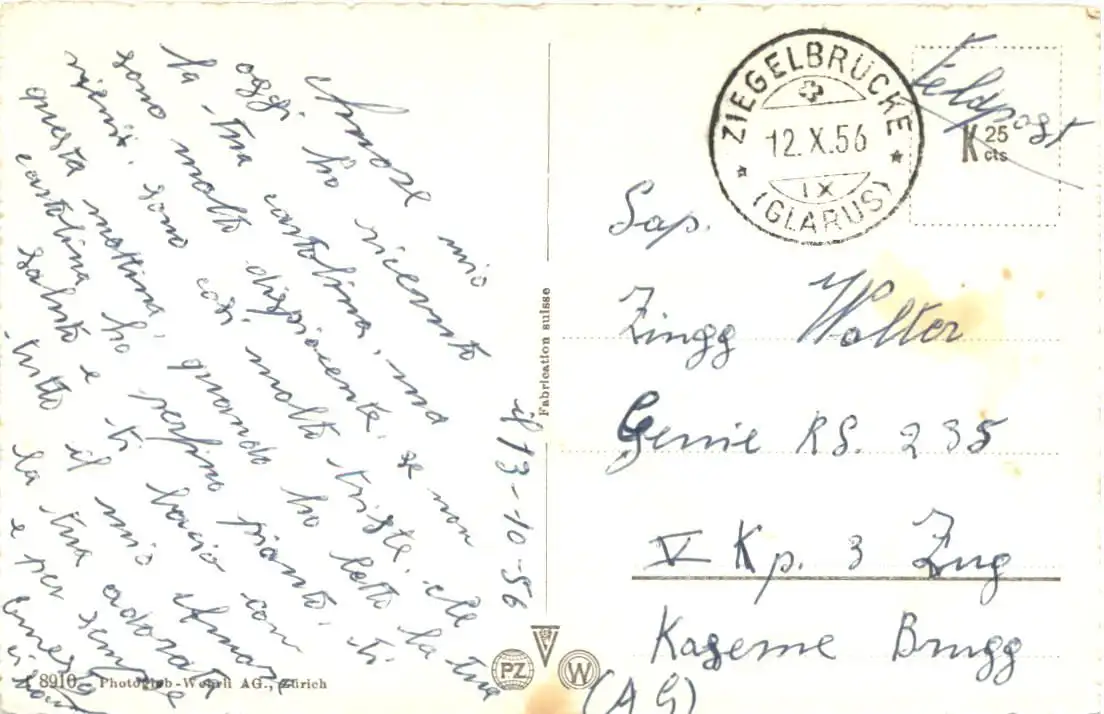 Amore mio
oggi ho ricevuto
la tua cartolina, ma
sono molto dispiacente, se non
vieni. sono cosi molto triste. che
questa mattina, quando ho letto la tua
cartolina ho perfino pianto. ti
saluto e ti bacio con
tutto il mio Amore
la tua adorata
e per sempre
il 13-10-56
Fabrication suisse
ZIEGELBRÜCKE
12.X.56
IX
(GLARUS)
Feldpost
K 25 cts
Sap.
Zingg Walter
Genie RS. 235
V Kp. 3 Zug
Kaserne Brugg
(AG)
PZ W
8910 Photoglob-Wehrli AG., Zürich